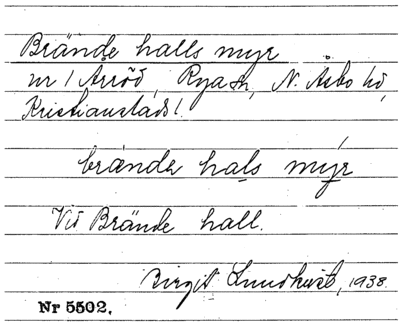 Brände halls myr
nr 1 Arröd, Rya sn, N. Åsbo hd,
Kristianstads l.
brände hals mýr
Vid Brände hall.
Birgit Lundkvist, 1938.
Nr 5502.